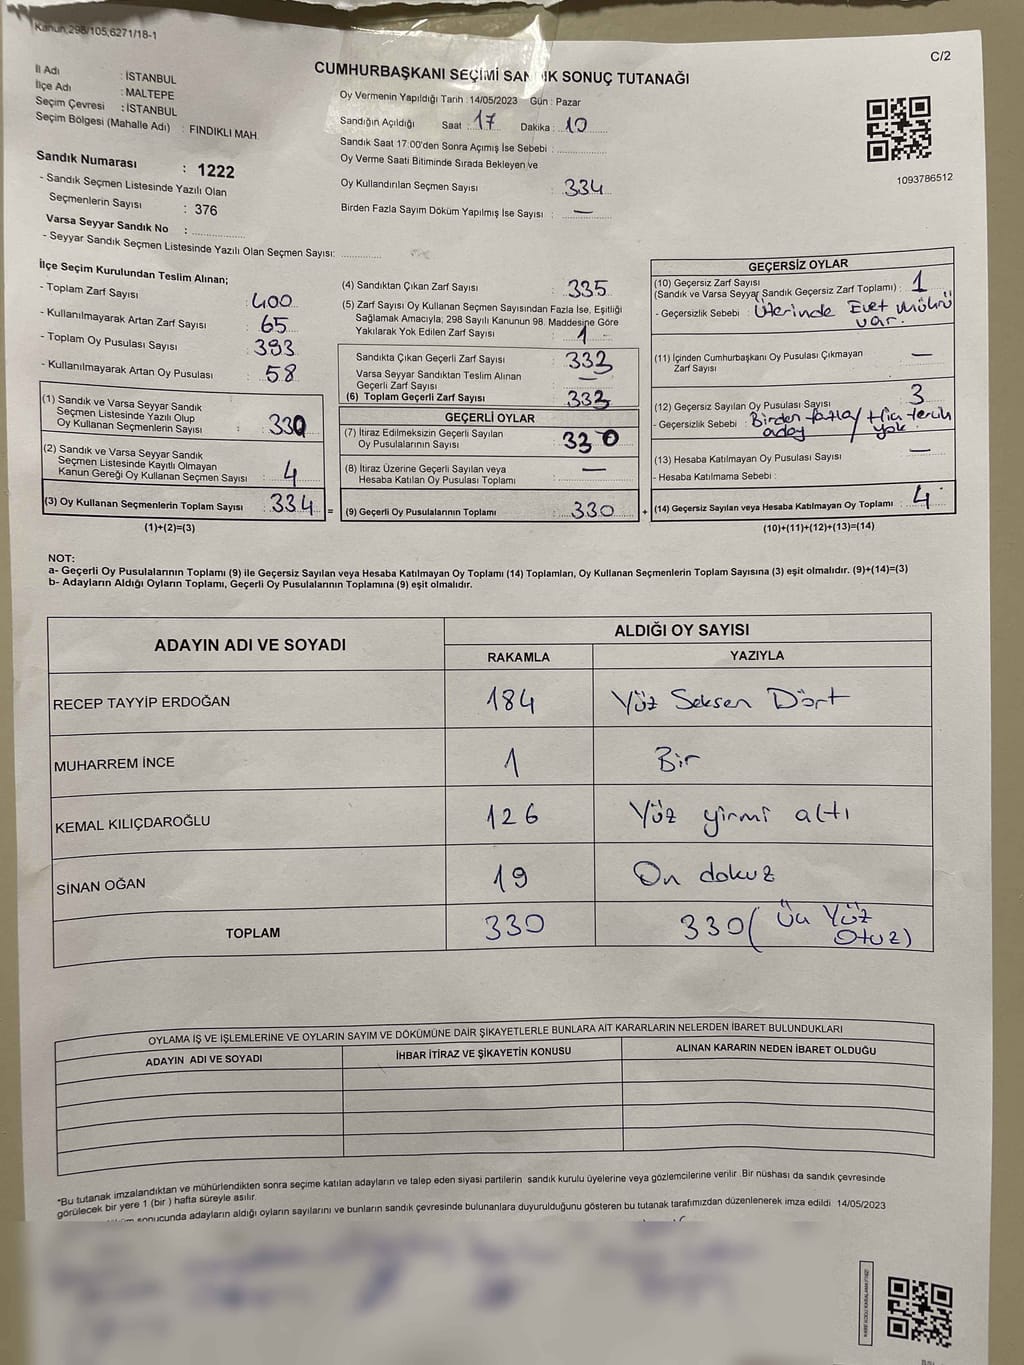 Kanun;298/105;6271/18-1
C/2
CUMHURBAŞKANI SEÇİMİ SANDIK SONUÇ TUTANAĞI
İl Adı : İSTANBUL
İlçe Adı : MALTEPE
Seçim Çevresi : İSTANBUL
Seçim Bölgesi (Mahalle Adı) : FINDIKLI MAH.
Sandık Numarası : 1222
- Sandık Seçmen Listesinde Yazılı Olan
Seçmenlerin Sayısı : 376
Varsa Seyyar Sandık No :
- Seyyar Sandık Seçmen Listesinde Yazılı Olan Seçmen Sayısı:
Oy Vermenin Yapıldığı Tarih :14/05/2023 Gün : Pazar
Sandığın Açıldığı Saat : 17 Dakika : 10
Sandık Saat 17:00'den Sonra Açımış İse Sebebi :
Oy Verme Saati Bitiminde Sırada Bekleyen ve
Oy Kullandırılan Seçmen Sayısı : 334
Birden Fazla Sayım Döküm Yapılmış İse Sayısı : —
1093786512
İlçe Seçim Kurulundan Teslim Alınan;
- Toplam Zarf Sayısı : 400
- Kullanılmayarak Artan Zarf Sayısı : 65
- Toplam Oy Pusulası Sayısı : 393
- Kullanılmayarak Artan Oy Pusulası : 58
(1) Sandık ve Varsa Seyyar Sandık
Seçmen Listesinde Yazılı Olup
Oy Kullanan Seçmenlerin Sayısı : 330
(2) Sandık ve Varsa Seyyar Sandık
Seçmen Listesinde Kayıtlı Olmayan
Kanun Gereği Oy Kullanan Seçmen Sayısı : 4
(3) Oy Kullanan Seçmenlerin Toplam Sayısı : 334 =
(1)+(2)=(3)
(4) Sandıktan Çıkan Zarf Sayısı : 335
(5) Zarf Sayısı Oy Kullanan Seçmen Sayısından Fazla İse, Eşitliği
Sağlamak Amacıyla; 298 Sayılı Kanunun 98. Maddesine Göre
Yakılarak Yok Edilen Zarf Sayısı : 1
Sandıkta Çıkan Geçerli Zarf Sayısı : 333
Varsa Seyyar Sandıktan Teslim Alınan
Geçerli Zarf Sayısı : —
(6) Toplam Geçerli Zarf Sayısı : 333
GEÇERLİ OYLAR
(7) İtiraz Edilmeksizin Geçerli Sayılan
Oy Pusulalarının Sayısı : 330
(8) İtiraz Üzerine Geçerli Sayılan veya
Hesaba Katılan Oy Pusulası Toplamı : —
(9) Geçerli Oy Pusulalarının Toplamı : 330 +
GEÇERSİZ OYLAR
(10) Geçersiz Zarf Sayısı
(Sandık ve Varsa Seyyar Sandık Geçersiz Zarf Toplamı) : 1
- Geçersizlik Sebebi : Üzerinde Evet mührü
var.
(11) İçinden Cumhurbaşkanı Oy Pusulası Çıkmayan
Zarf Sayısı : —
(12) Geçersiz Sayılan Oy Pusulası Sayısı : 3
- Geçersizlik Sebebi : Birden fazla / Hiç tercih
aday yok
(13) Hesaba Katılmayan Oy Pusulası Sayısı : —
- Hesaba Katılmama Sebebi :
(14) Geçersiz Sayılan veya Hesaba Katılmayan Oy Toplamı : 4
(10)+(11)+(12)+(13)=(14)
NOT:
a- Geçerli Oy Pusulalarının Toplamı (9) ile Geçersiz Sayılan veya Hesaba Katılmayan Oy Toplamı (14) Toplamları, Oy Kullanan Seçmenlerin Toplam Sayısına (3) eşit olmalıdır. (9)+(14)=(3)
b- Adayların Aldığı Oyların Toplamı, Geçerli Oy Pusulalarının Toplamına (9) eşit olmalıdır.
ADAYIN ADI VE SOYADI ALDIĞI OY SAYISI
RAKAMLA YAZIYLA
RECEP TAYYİP ERDOĞAN 184 Yüz Seksen Dört
MUHARREM İNCE 1 Bir
KEMAL KILIÇDAROĞLU 126 Yüz yirmi altı
SİNAN OĞAN 19 On dokuz
TOPLAM 330 330 ( Üç Yüz
Otuz)
OYLAMA İŞ VE İŞLEMLERİNE VE OYLARIN SAYIM VE DÖKÜMÜNE DAİR ŞİKAYETLERLE BUNLARA AİT KARARLARIN NELERDEN İBARET BULUNDUKLARI
ADAYIN ADI VE SOYADI İHBAR İTİRAZ VE ŞİKAYETİN KONUSU ALINAN KARARIN NEDEN İBARET OLDUĞU
*Bu tutanak imzalandıktan ve mühürlendikten sonra seçime katılan adayların ve talep eden siyasi partilerin sandık kurulu üyelerine veya gözlemcilerine verilir .Bir nüshası da sandık çevresinde
görülecek bir yere 1 (bir ) hafta süreyle asılır.
sonucunda adayların aldığı oyların sayılarını ve bunların sandık çevresinde bulunanlara duyurulduğunu gösteren bu tutanak tarafımızdan düzenlenerek imza edildi 14/05/2023